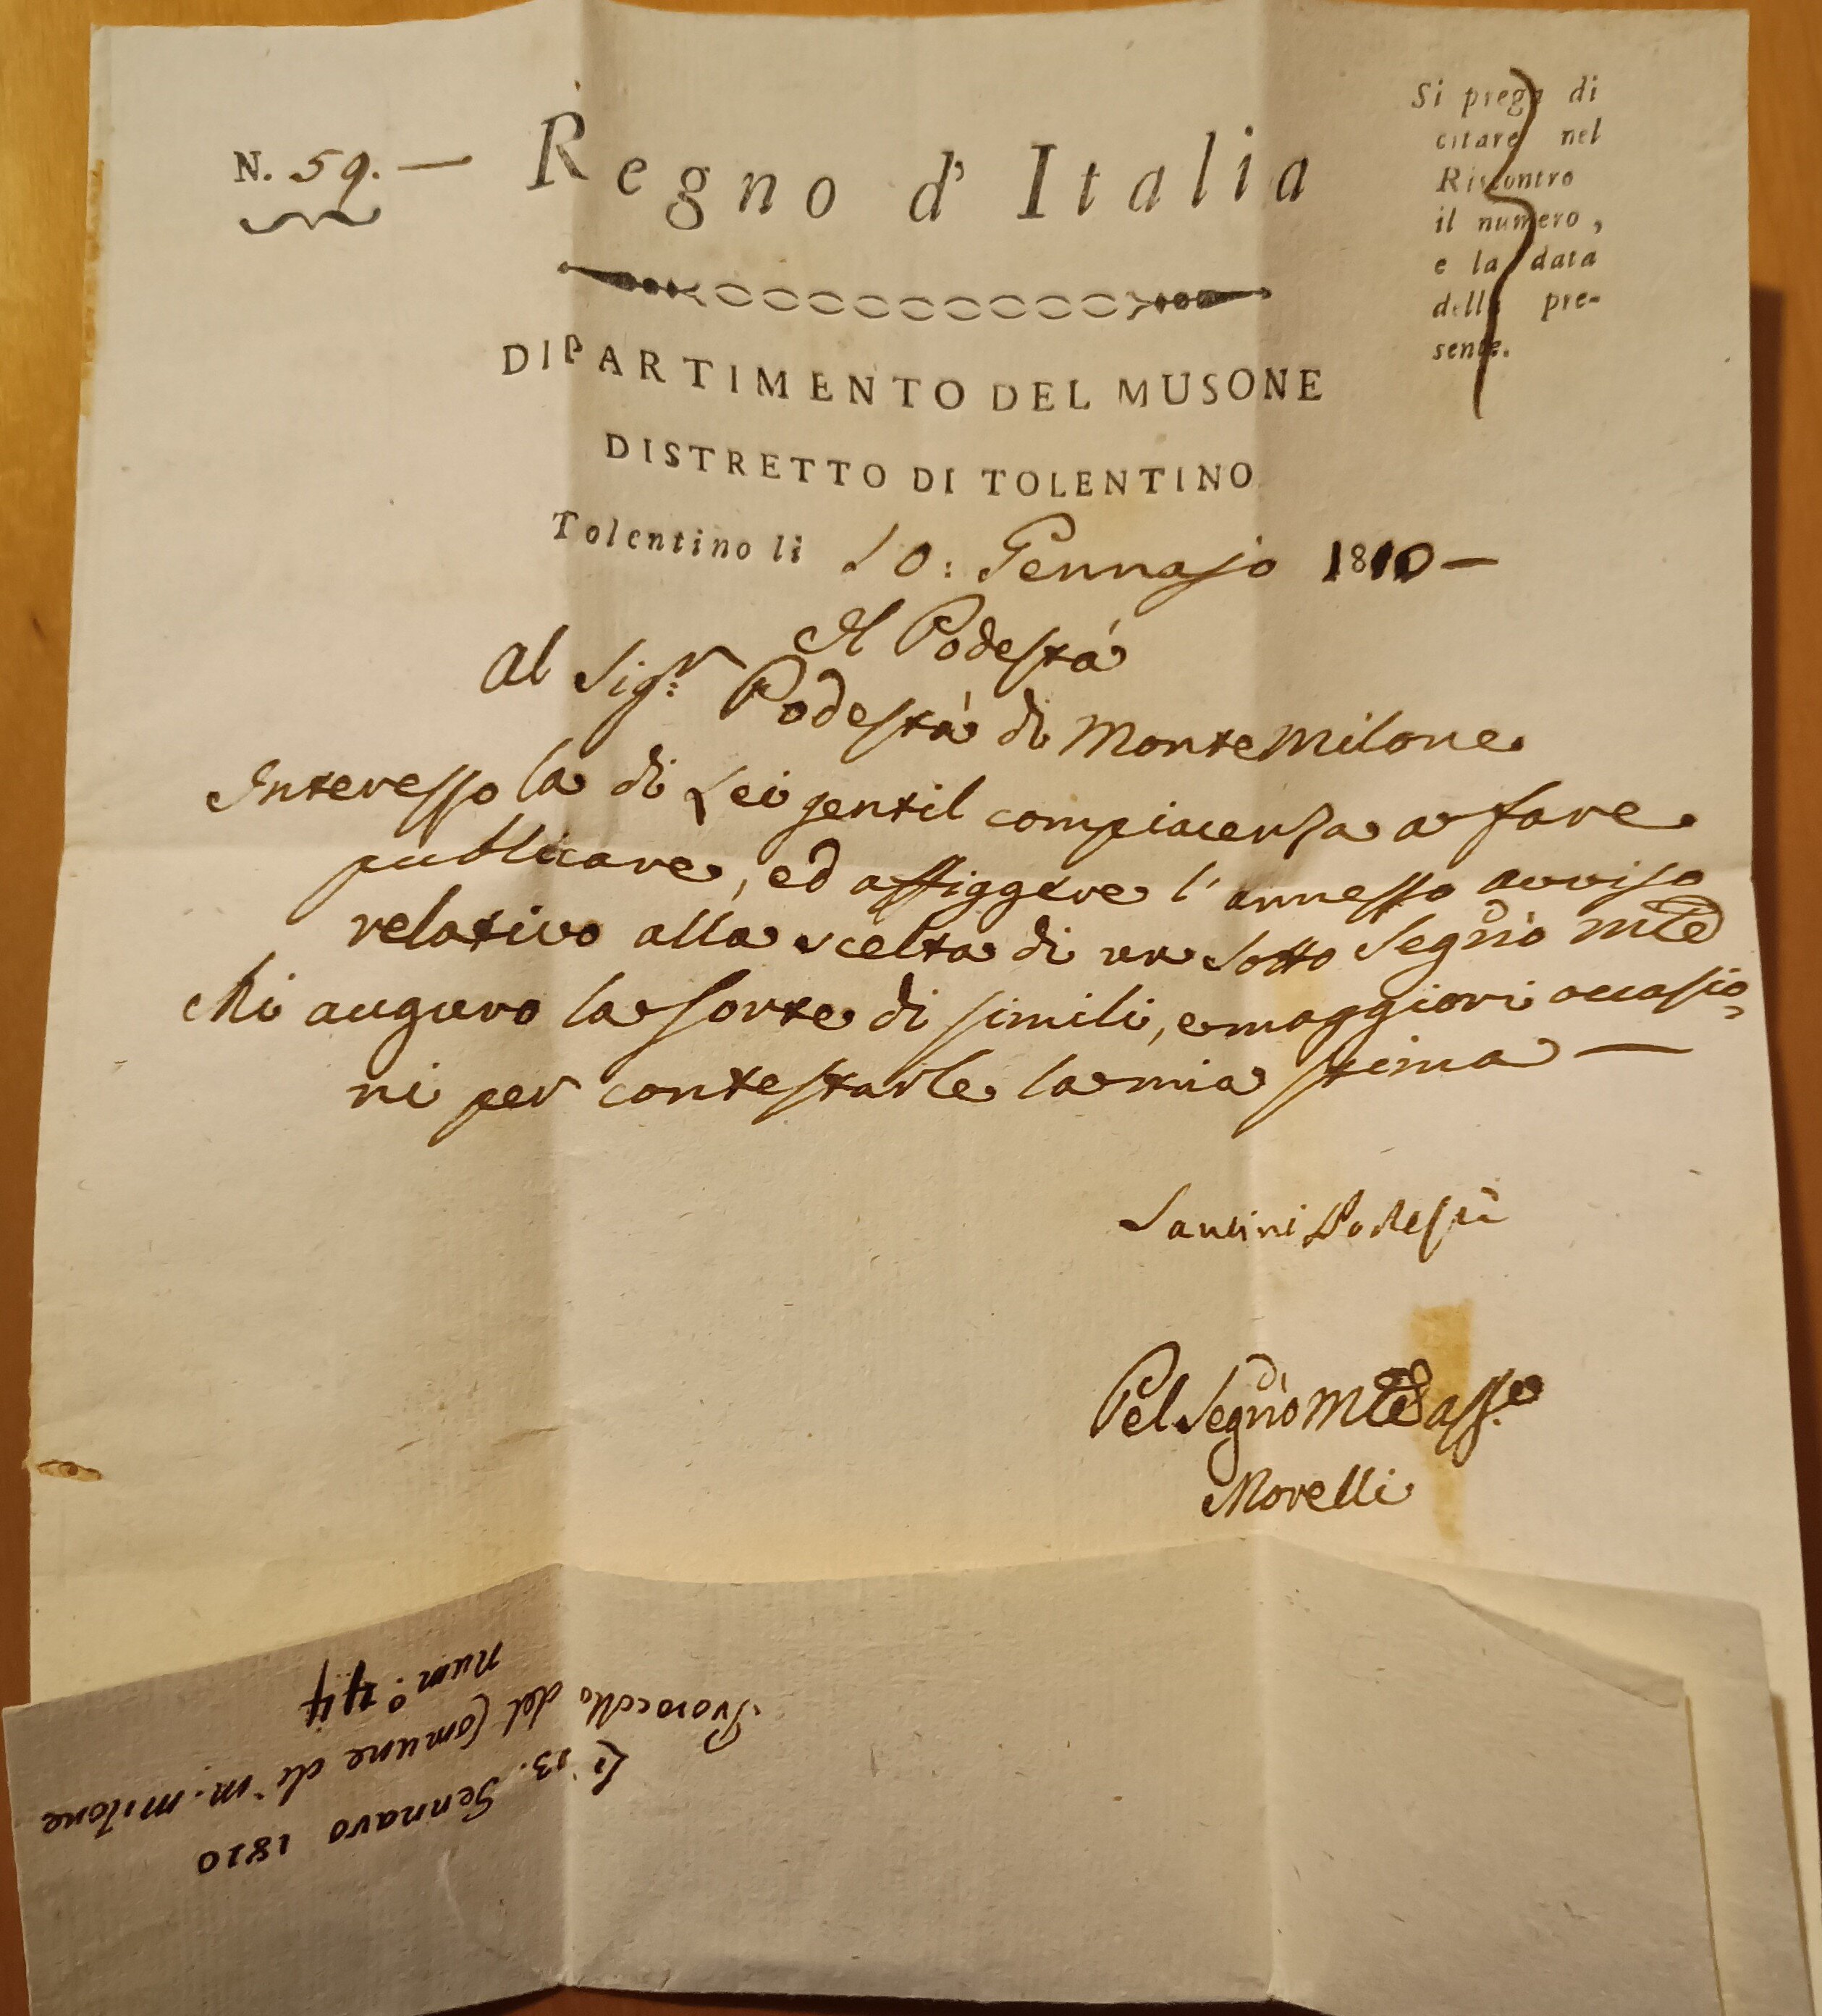 N. 59. —
Regno d'Italia
Si prega di
citare nel
Riscontro
il numero,
e la data
della pre-
sente.
DIPARTIMENTO DEL MUSONE
DISTRETTO DI TOLENTINO
Tolentino li 10: Gennajo 1810 —
Il Podestà
Al Sigr: Podestà di Monte Milone
Interesso la di Lei gentil compiacenza a fare
publicare, ed affiggere l'annesso avviso
relativo alla scelta di un Sotto Segrio Mle
Mi auguro la sorte di simili, e maggiori occasio=
ni per contestarle la mia stima —
Santini Podestà
Pel Segrio Mle ass.e
Morelli
Li 13. Gennaro 1810
Protocollo del Comune di M. Milone
num.o 44